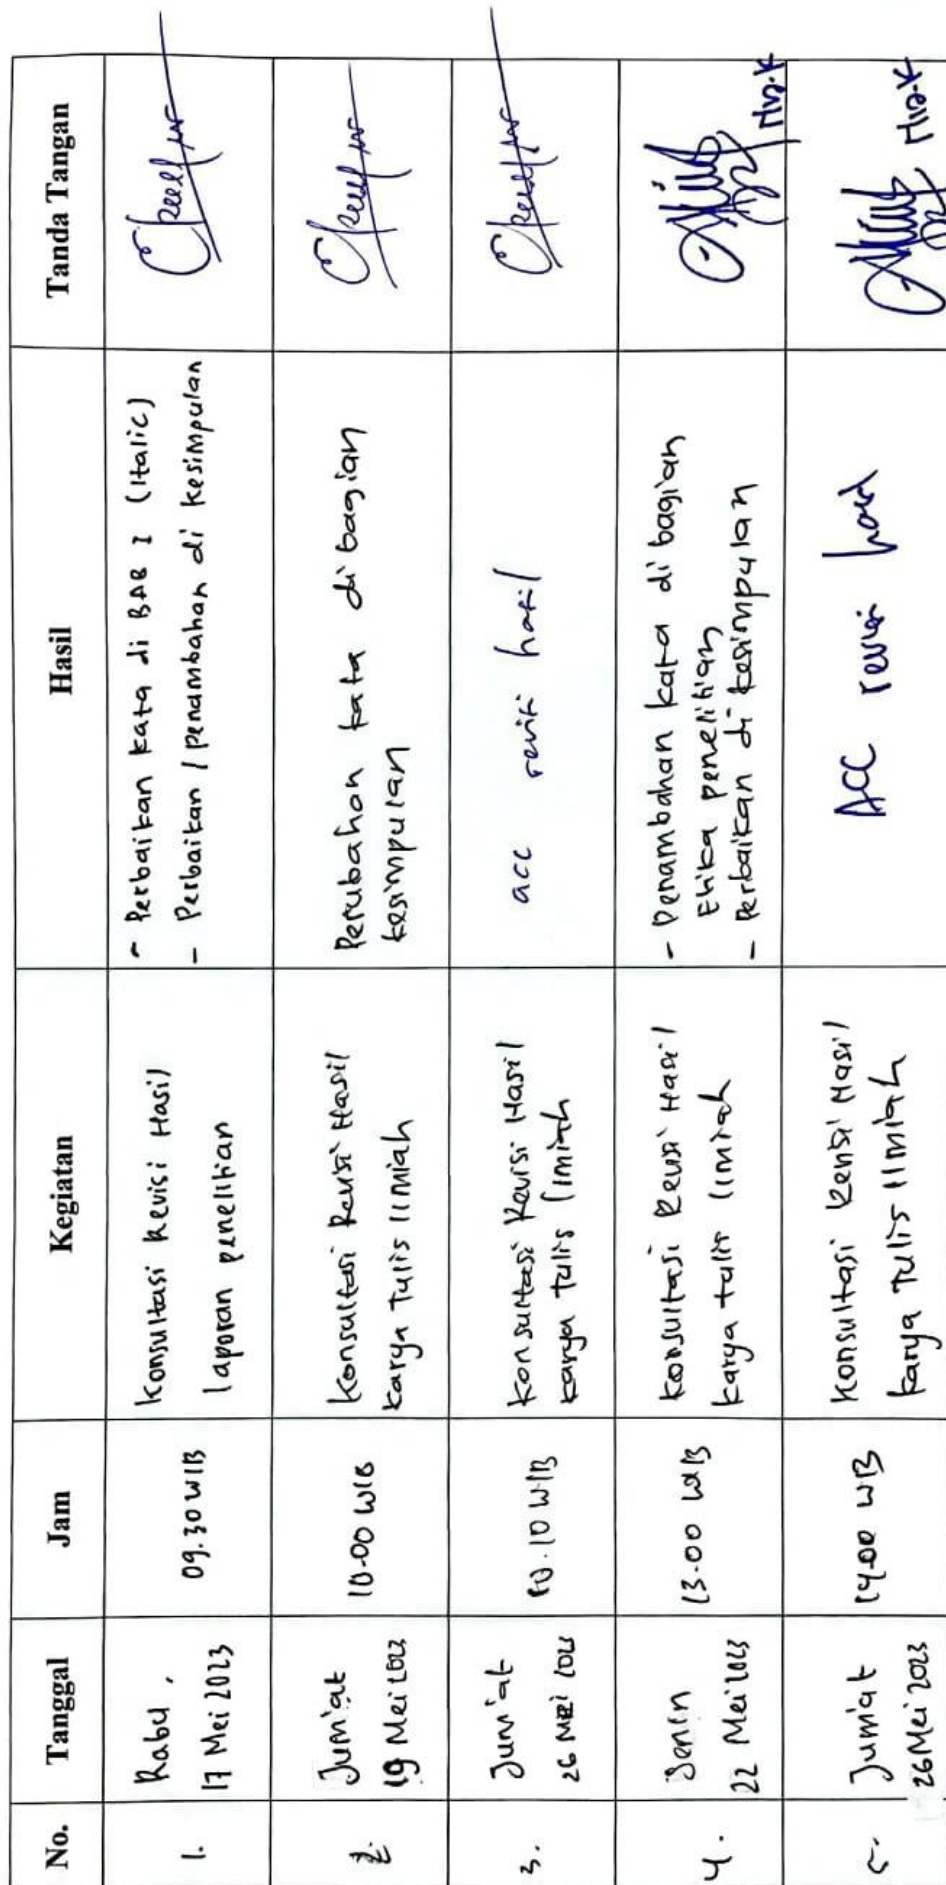 No. Tanggal Jam Kegiatan Hasil Tanda Tangan
1.
Rabu,
17 Mei 2023
09.30 WIB
Konsultasi Revisi Hasil
laporan penelitian
- Perbaikan kata di BAB I (Italic)
- Perbaikan / penambahan di kesimpulan
2.
Jum'at
19 Mei 2023
10.00 WIB
Konsultasi Revisi Hasil
Karya Tulis Ilmiah
Perubahan kata di bagian
kesimpulan
3.
Jum'at
26 Mei 2023
10.10 WIB
Konsultasi Revisi Hasil
Karya Tulis Ilmiah
acc revisi hasil
4.
Senin
22 Mei 2023
13.00 WIB
Konsultasi Revisi Hasil
Karya tulis Ilmiah
- Penambahan kata di bagian
Etika penelitian
- Perbaikan di kesimpulan
5.
Jum'at
26 Mei 2023
14.00 WIB
Konsultasi Revisi Hasil
Karya Tulis Ilmiah
ACC revisi hasil